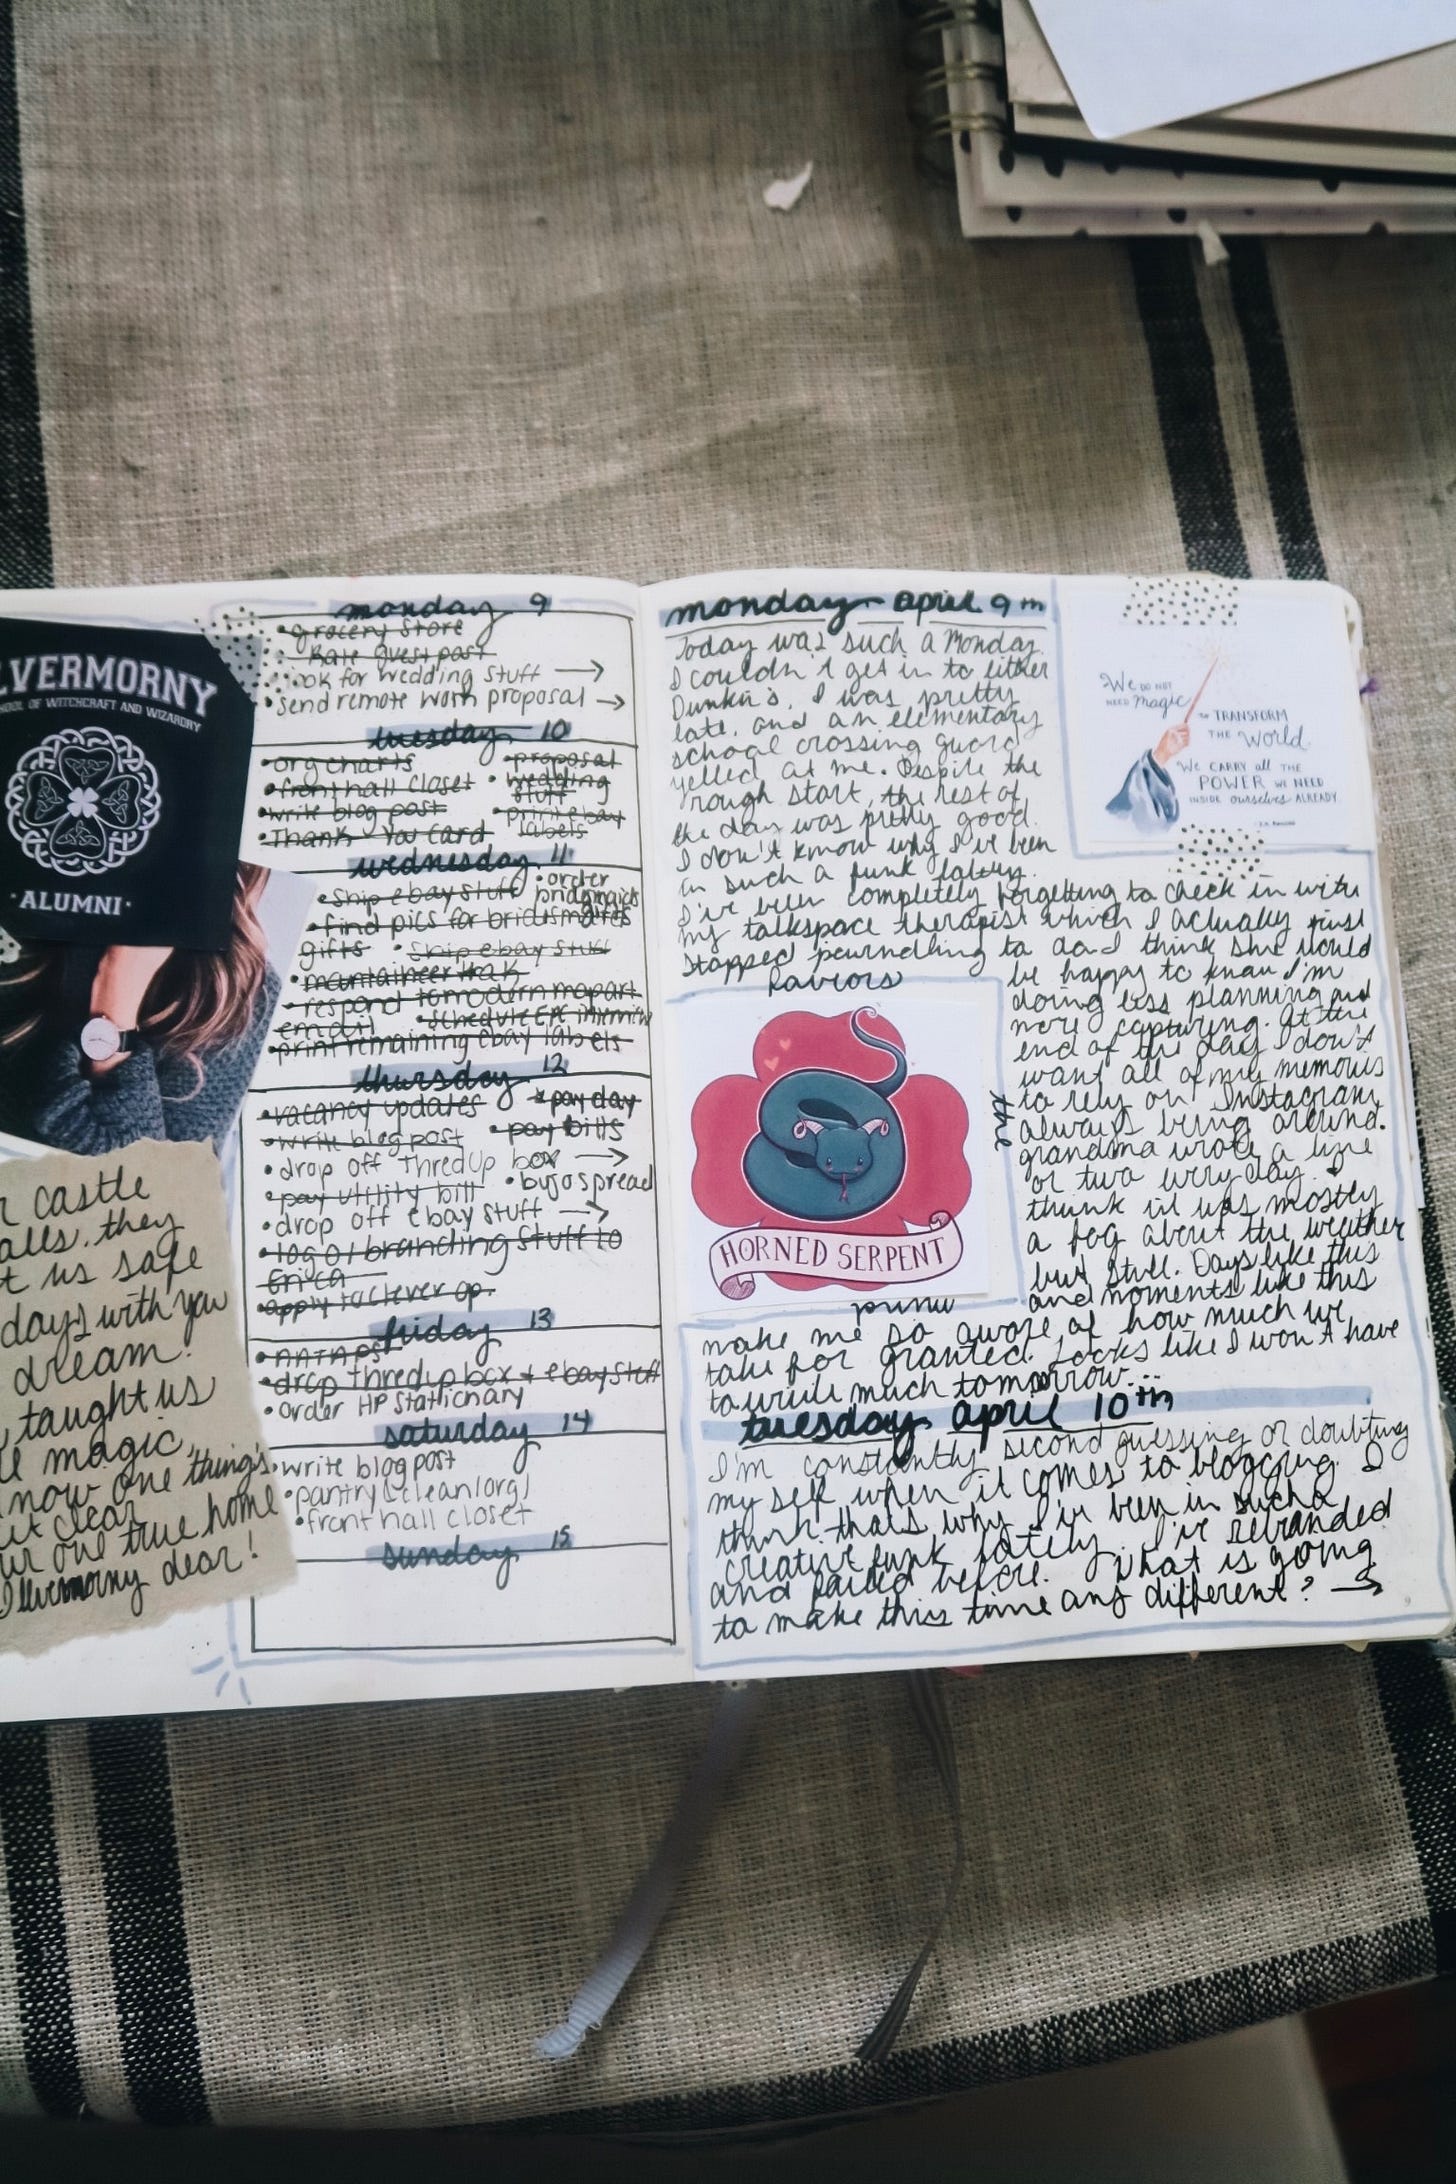 LVERMORNY
OOL OF WITCHCRAFT AND WIZARDRY
·ALUMNI·
r castle
alls, they
t us safe
days with you
dream!
taught us
e magic,
now one thing's
it clear
ur one true home
Illvermorny dear!
monday 9
•grocery store
guest post
ook for wedding stuff →
•send remote worth proposal →
tuesday 10
•org charts
•front hall closet
•write blog post
•Thank You Card
•proposal
•wedding
stuff
•print ebay
labels
wednesday 11
•ship ebay stuff
•order
bridesmaids
•find pics for bridesmaids
gifts •ship ebay stuff
•respond to modern mopart
email •schedule interview
•print remaining ebay labels
thursday 12
•vacancy updates •pay day
•write blog post •pay bills
•drop off thredup box →
•pay utility bill •bujo spread
•drop off ebay stuff →
•logo/branding stuff to
Erica
•apply to clever op.
friday 13
•drop thredup box + ebay stuff
•order HP stationary
saturday 14
•write blog post
•pantry (clean/org)
•front hall closet
sunday 15
monday april 9th
Today was such a Monday.
I couldn't get in to either
Dunkin's, I was pretty
late, and an elementary
school crossing guard
yelled at me. Despite the
rough start, the rest of
the day was pretty good.
I don't know why I've been
in such a funk lately.
I've been completely forgetting to check in with
my talkspace therapist which I actually just
stopped journaling to do. I think she would
be happy to know I'm
doing less planning and
more capturing. At the
end of the day I don't
want all of my memories
to rely on Instagram
always being around.
the
grandma wrote a line
or two every day. I
think it was mostly
a log about the weather
but still. Days like this
and moments like this
make me so aware of how much we
take for granted. Looks like I won't have
to write much tomorrow...
WE DO NOT
NEED Magic
TO TRANSFORM
THE World.
WE CARRY all THE
POWER WE NEED
INSIDE ourselves ALREADY.
HORNED SERPENT
tuesday april 10th
I'm constantly second guessing or doubting
myself when it comes to blogging. I
think that's why I've been in such a
creative funk lately. I've rebranded
and failed before. What is going
to make this time any different? →